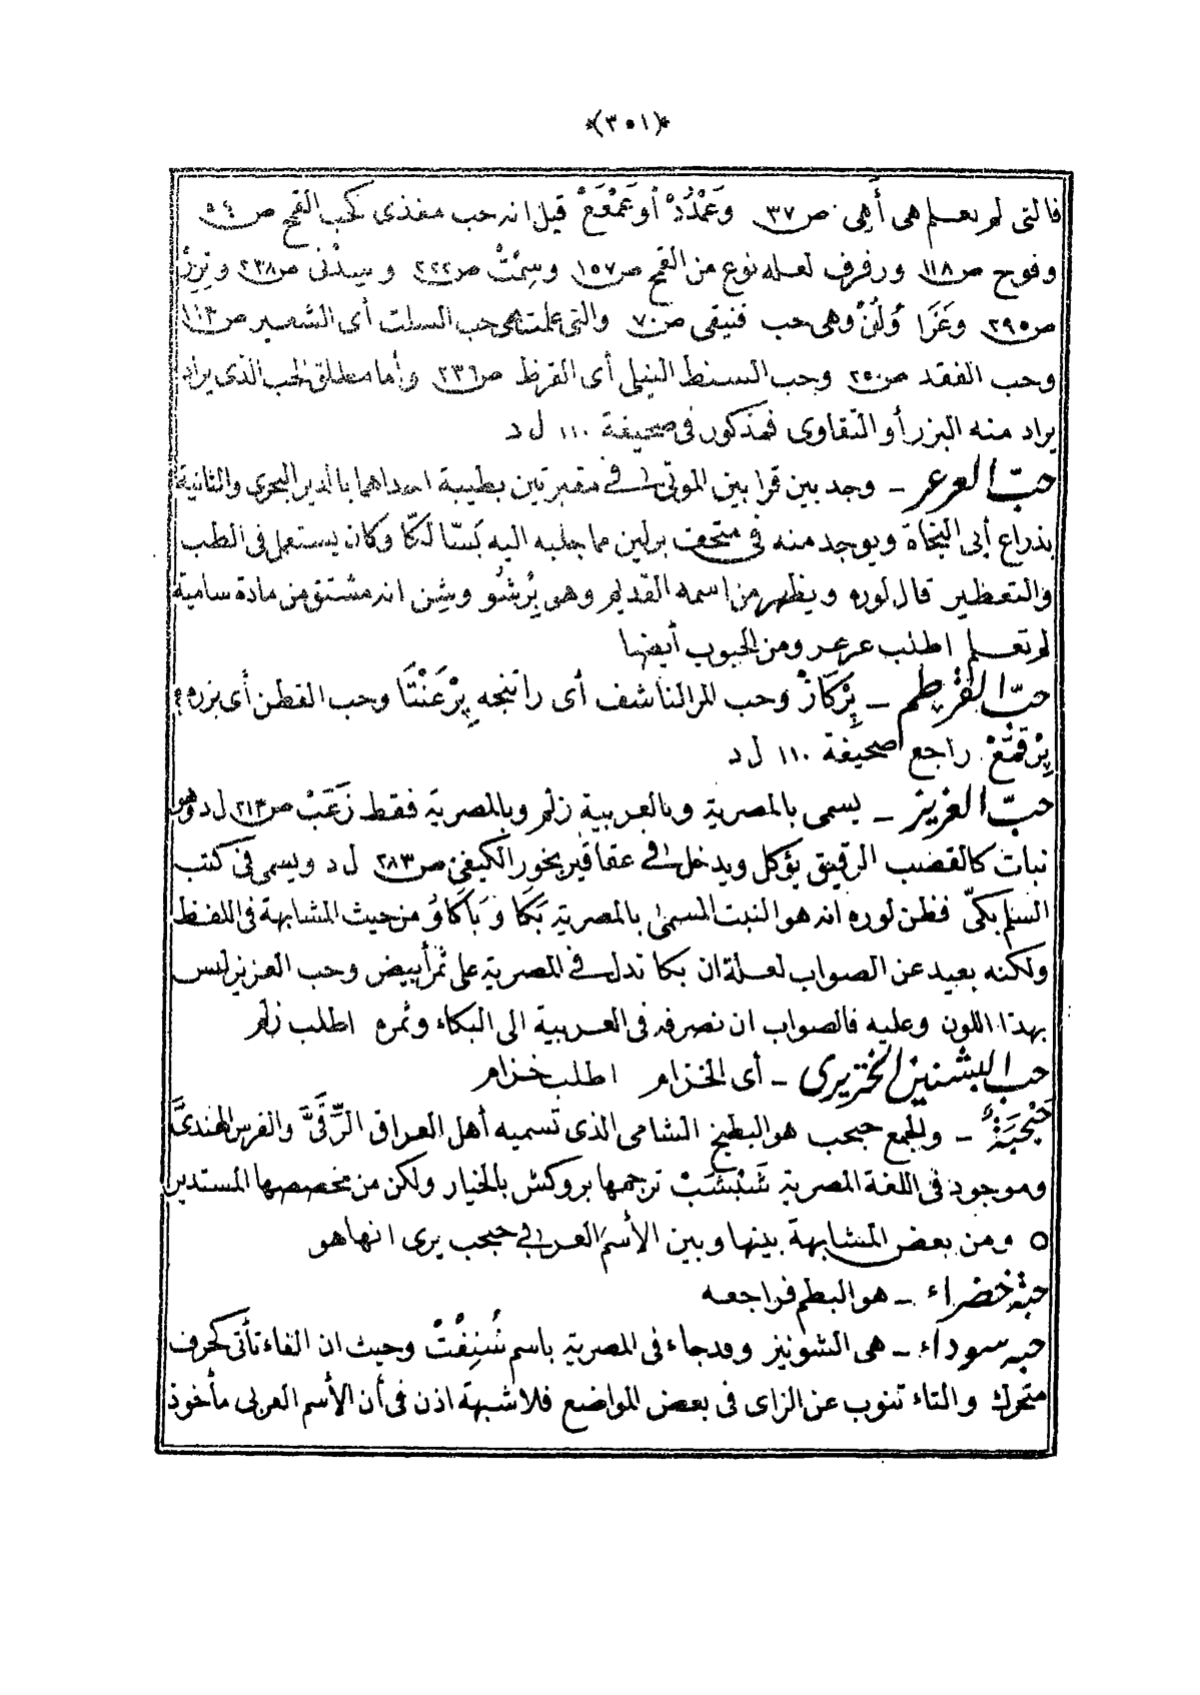 *(٣٥١)*
فالتى لم يعلم هى أَهِى ص٣٧ وَعَمْدُدْ أو عَمْعَعْ قيل انه حب مغذى كحب القمح ص٥٤
وفوح ص١١٨ ورفرف لعله نوع من القمح ص١٥٧ وسِمْتْ ص٢٢٢ وسِدْنى ص٢٣٨ وتِزِرْ
ص٢٩٥ وعَزَا وُلُنْ وهى حب فنيقى ص٧٠ والتى علمت هى حب السلت أى الشعير ص١١٣
وحب الفقد ص٢٥٠ وحب السنط النيلى أى القرظ ص٢٣٦ وأما مطلق الحب الذى يراد
يراد منه البزر أو التقاوى فمذكور فى صحيفة ١١٠ ل د
حبّ العرعر ــ وجد بين قرابين الموتى فى مقبرتين بطيبة احداهما بالدير البحرى والثانية
بذراع أبى النجاة ويوجد منه فى متحف برلين مما جلبه اليه بَسَّالَكَّا وكان يستعمل فى الطب
والتعطير قال لوره ويظهر من اسمه القديم وهى بُرشُو وشِن انه مشتق من مادة سامية
لم تعلم اطلب عرعر ومن الحبوب أيضا
حبّ القرطم ــ بِرْكَازْ وحب المر الناشف أى راتنجه بِرْعَنْتَا وحب القطن أى بزره
بِرْقَمَّعْ راجع صحيفة ١١٠ ل د
حبّ العزيز ــ يسمى بالمصرية وبالعربية زلم وبالمصرية فقط زَعَبْ ص٢١٣ ل د وهو
نبات كالقضب الرقيق يؤكل ويدخل فى عقاقير بخور الكيفى ص٢٨٣ ل د ويسمى فى كتب
السلم بكىّ فظن لوره انه هو النبت المسمى بالمصرية بَكَا وَبَاكَاوُ من حيث المشابهة فى اللفظ
ولكنه بعيد عن الصواب لعلة ان بكا تدل فى المصرية على ثمر أبيض وحب العزيز ليس
بهذا اللون وعليه فالصواب ان نصرفه فى العربية الى البكاء وثمره اطلب زلم
حب البشنين الخنزيرى ــ أى الخزام اطلب خزام
حَبْحَبَةٌ ــ والجمع حبحب هو البطيخ الشامى الذى تسميه أهل العراق الرِّقِّىَّ والفرس الهندىَّ
وموجود فى اللغة المصرية شَبْشَبْ ترجمها بروكش بالخيار ولكن من مخصصها المستدير
○ ومن بعض المشابهة بينها وبين الأسم العربى حبحب يرى انها هو
حبة خضراء ــ هو البطم فراجعه
حبه سوداء ــ هى الشونيز وقد جاء فى المصرية باسم شُنِفْتْ وحيث ان الفاء تأتى كحرف
متحرك والتاء تنوب عن الزاى فى بعض المواضع فلا شبهة اذن فى أن الأسم العربى مأخوذ